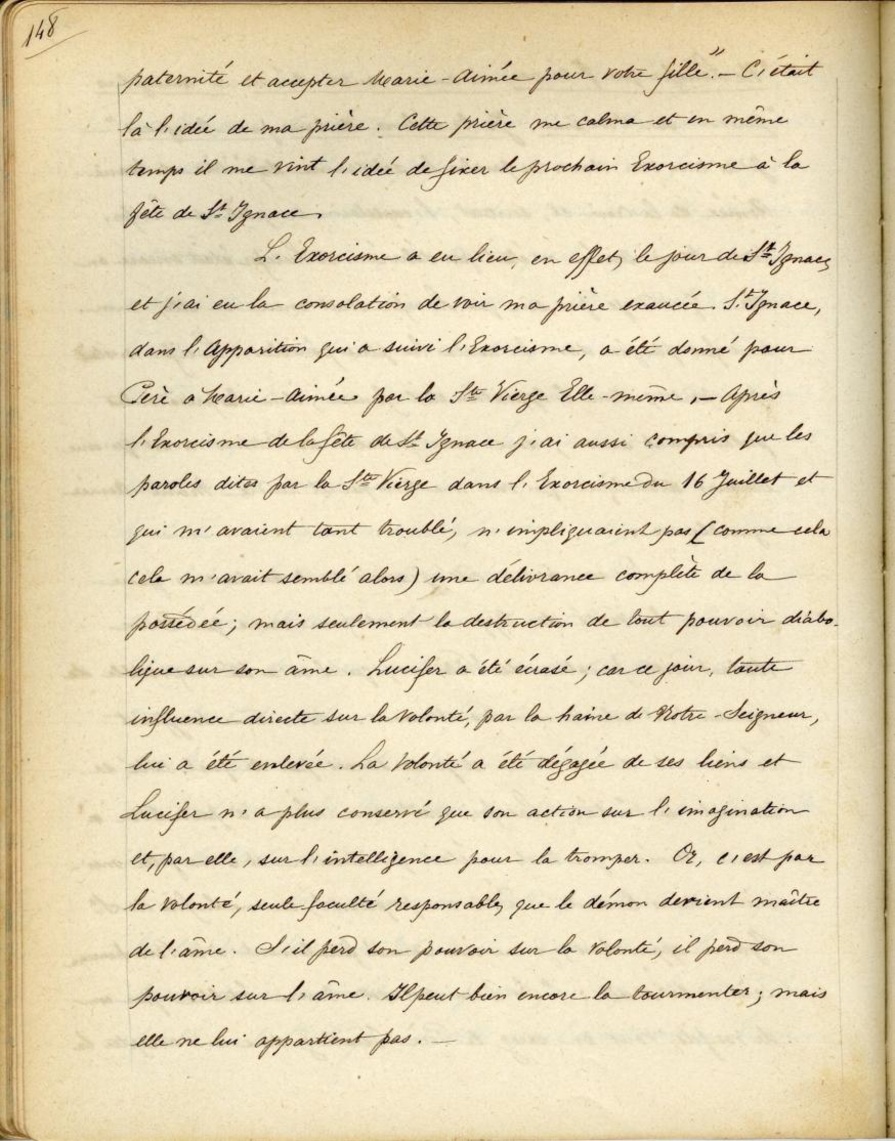 148
paternité et accepter Marie-Aimée pour votre fille". — C'était
là l'idée de ma prière. Cette prière me calma et en même
temps il me vint l'idée de fixer le prochain Exorcisme à la
fête de St Ignace.
L'Exorcisme a eu lieu, en effet, le jour de St Ignace,
et j'ai eu la consolation de voir ma prière exaucée. St Ignace,
dans l'Apparition qui a suivi l'Exorcisme, a été donné pour
Père à Marie-Aimée par la Ste Vierge Elle-même. — Après
l'Exorcisme de la fête de St Ignace j'ai aussi compris que les
paroles dites par la Ste Vierge dans l'Exorcisme du 16 Juillet et
qui m'avaient tant troublé, n'impliquaient pas (comme cela
cela m'avait semblé alors) une délivrance complète de la
possédée; mais seulement la destruction de tout pouvoir diabo-
lique sur son âme. Lucifer a été écrasé; car ce jour, toute
influence directe sur la volonté, par la haine de Notre-Seigneur,
lui a été enlevée. La volonté a été dégagée de ses liens et
Lucifer n'a plus conservé que son action sur l'imagination
et, par elle, sur l'intelligence pour la tromper. Or, c'est par
la volonté, seule faculté responsable, que le démon devient maître
de l'âme. S'il perd son pouvoir sur la volonté, il perd son
pouvoir sur l'âme. Il peut bien encore la tourmenter; mais
elle ne lui appartient pas. —